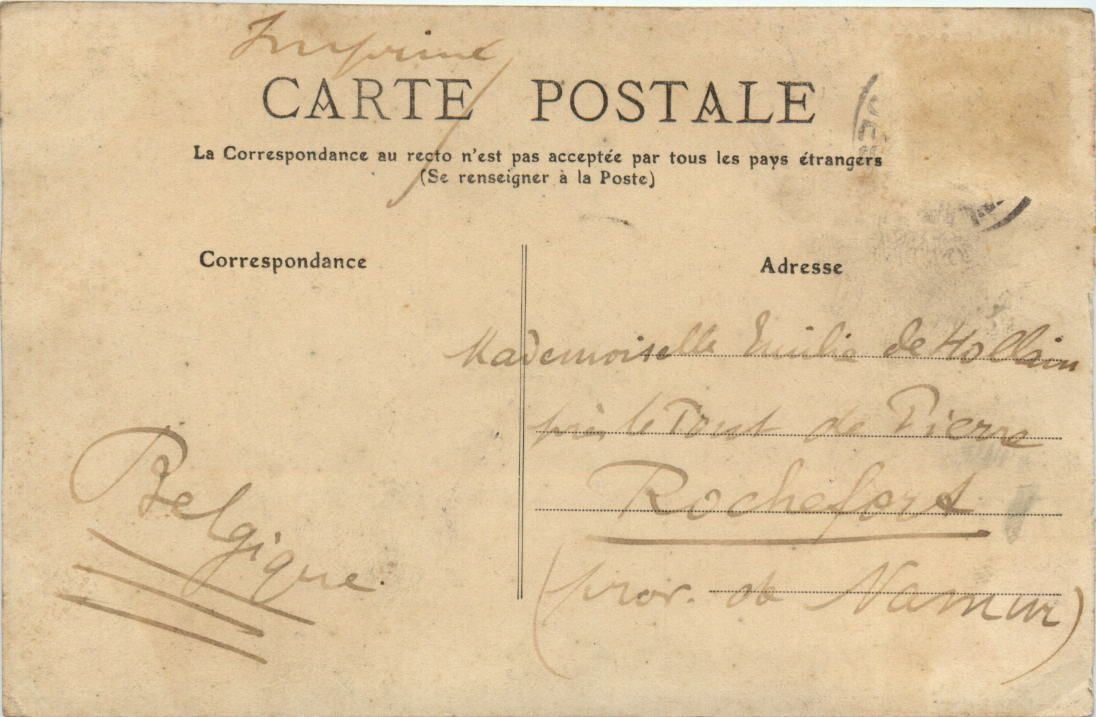 Imprimé
CARTE POSTALE
La Correspondance au recto n'est pas acceptée par tous les pays étrangers
(Se renseigner à la Poste)
Correspondance
Adresse
Mademoiselle Emilie de Hollain
près le Pont de Pierre
Rochefort
(prov. de Namur)
Belgique.